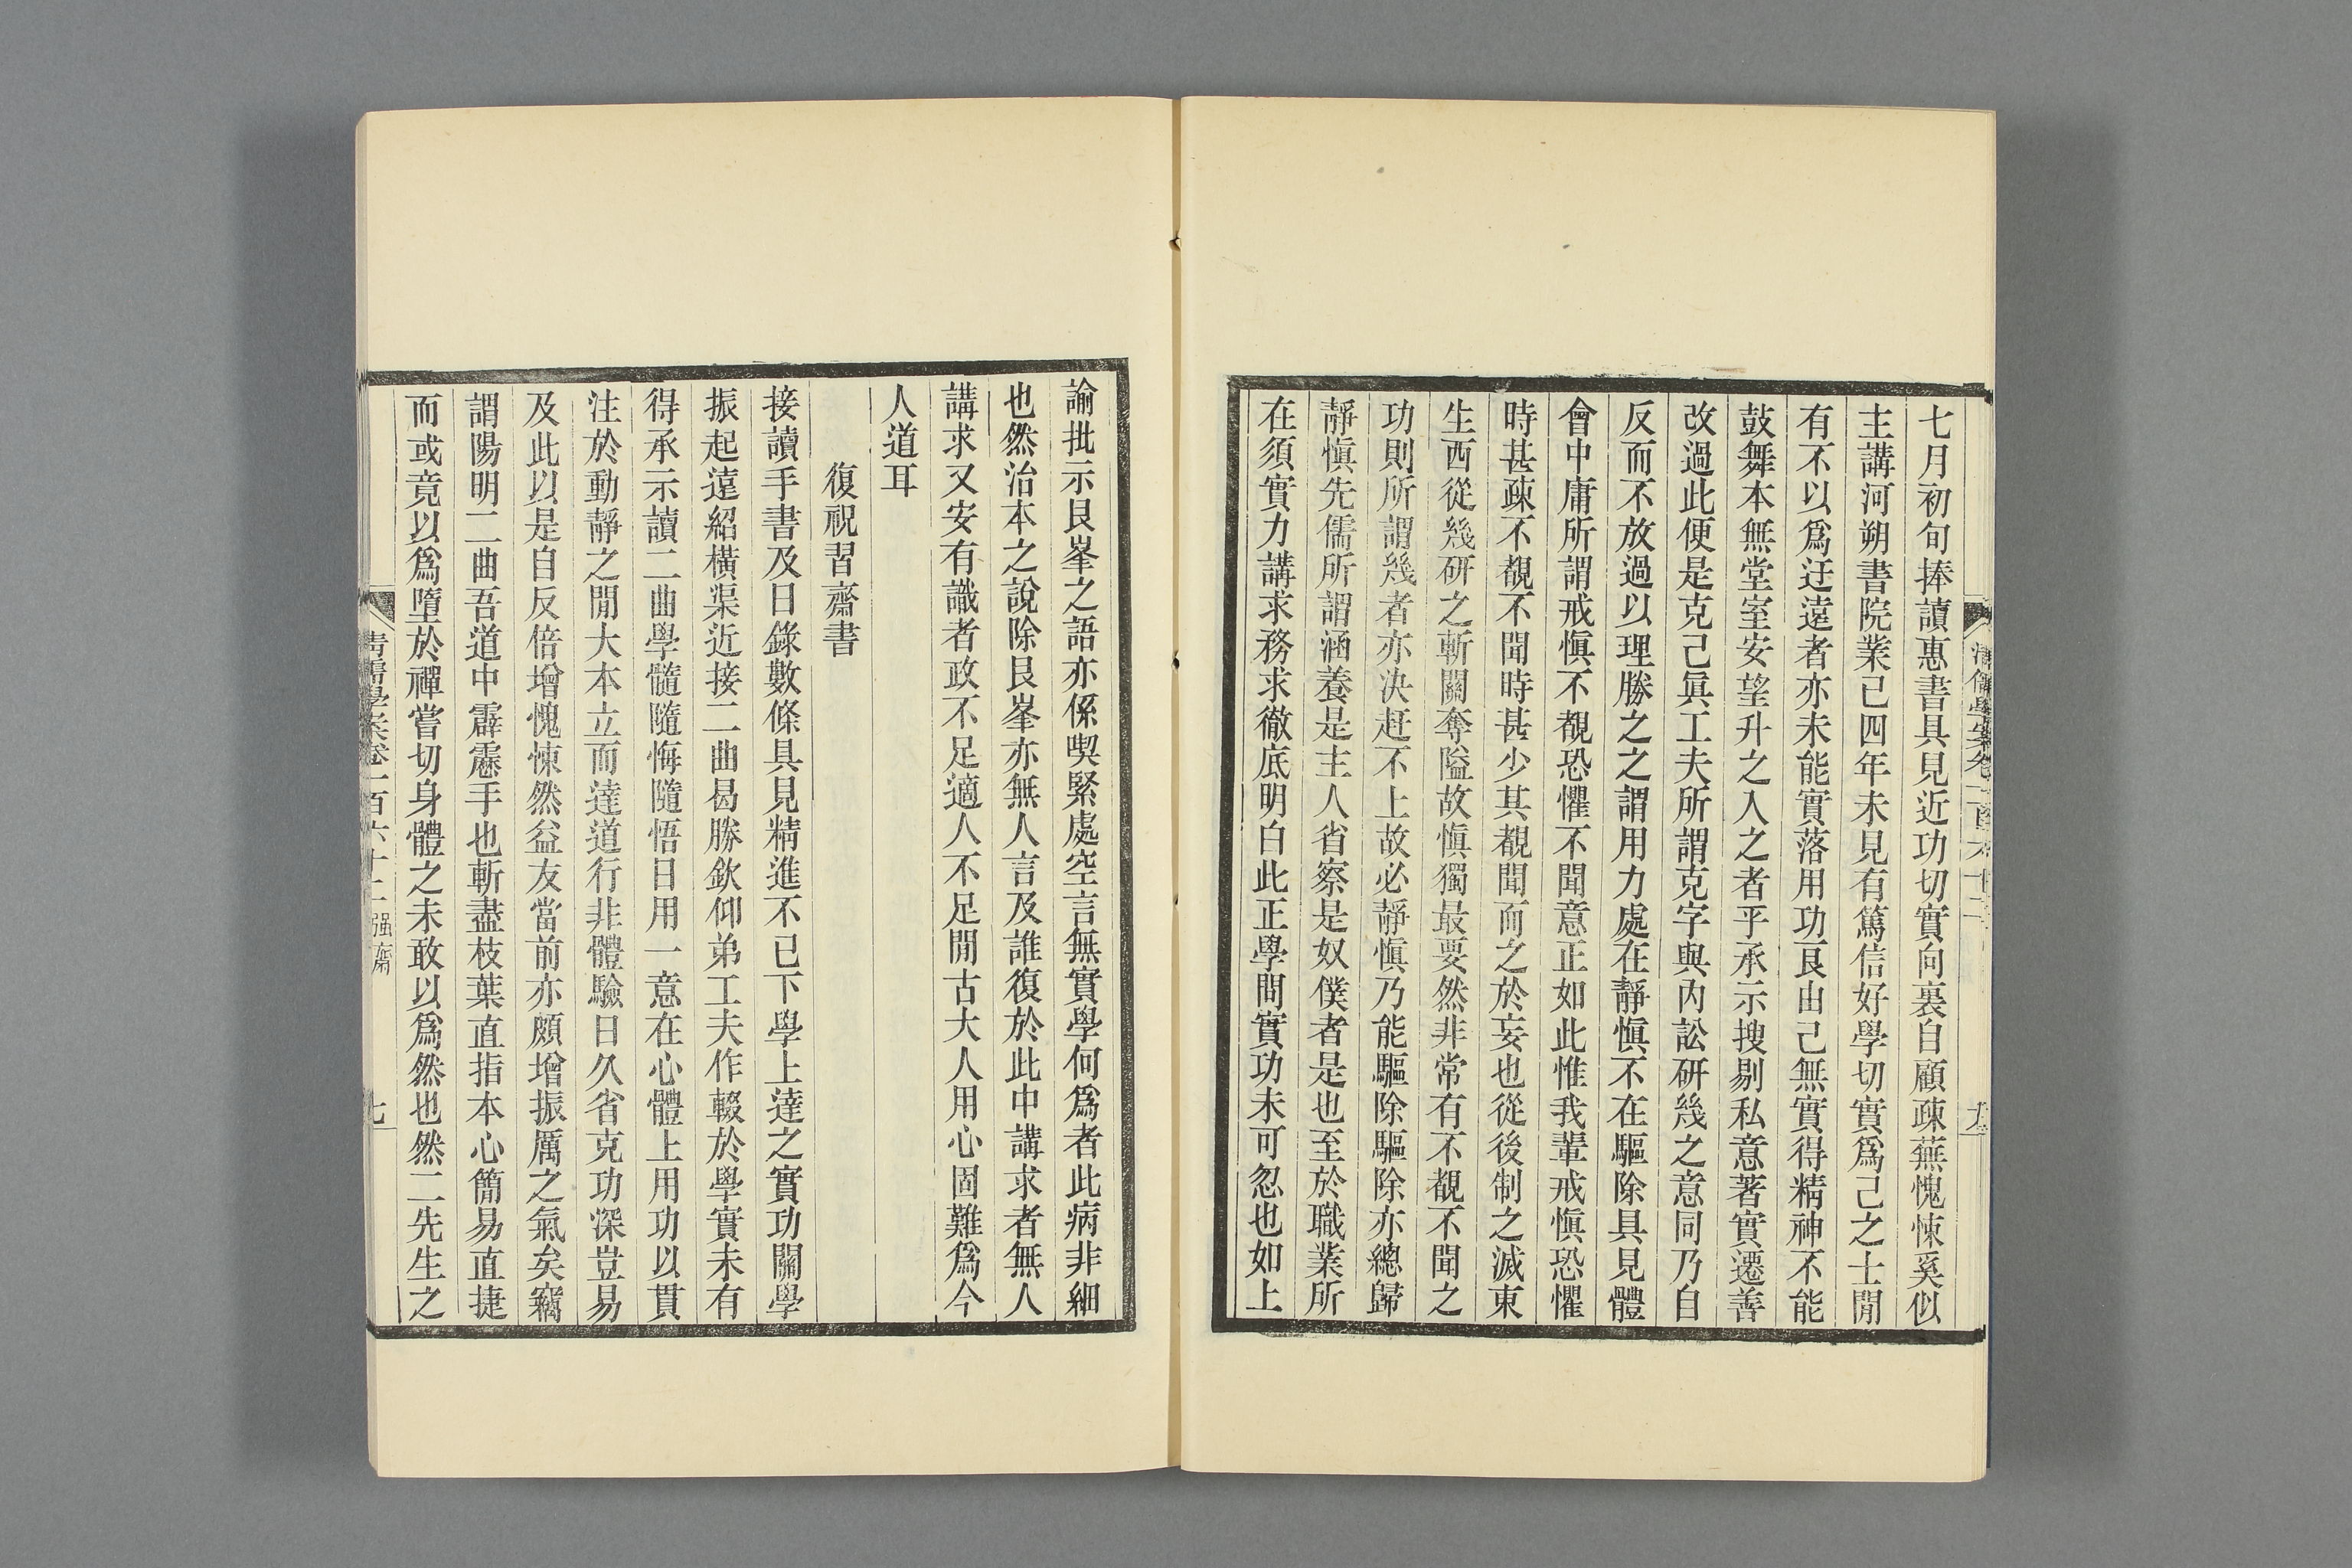 七月初旬捧讀惠書具見近功切實向裏自顧疎蕪愧悚奚似
主講河朔書院業已四年未見有篤信好學切實爲己之士閒
有不以爲迂遠者亦未能實落用功良由己無實得精神不能
鼓舞本無堂室安望升之入之者乎承示搜剔私意著實遷善
改過此便是克己眞工夫所謂克字與內訟研幾之意同乃自
反而不放過以理勝之之謂用力處在靜愼不在驅除具見體
會中庸所謂戒愼不覩恐懼不聞意正如此惟我輩戒愼恐懼
時甚疎不覩不聞時甚少其覩聞而之於妄也從後制之滅東
生西從幾研之斬關奪隘故愼獨最要然非常有不覩不聞之
功則所謂幾者亦決赶不上故必靜愼乃能驅除驅除亦總歸
靜愼先儒所謂涵養是主人省察是奴僕者是也至於職業所
在須實力講求務求徹底明白此正學問實功未可忽也如上
諭批示艮峯之語亦係喫緊處空言無實學何爲者此病非細
也然治本之說除艮峯亦無人言及誰復於此中講求者無人
講求又安有識者政不足適人不足閒古大人用心固難爲今
人道耳
復祝習齋書
接讀手書及日錄數條具見精進不已下學上達之實功關學
振起遠紹橫渠近接二曲曷勝欽仰弟工夫作輟於學實未有
得承示讀二曲學髓隨悔隨悟日用一意在心體上用功以貫
注於動靜之閒大本立而達道行非體驗日久省克功深豈易
及此以是自反倍增愧悚然益友當前亦頗增振厲之氣矣竊
謂陽明二曲吾道中霹靂手也斬盡枝葉直指本心簡易直捷
而或竟以爲墮於禪嘗切身體之未敢以爲然也然二先生之
清儒學案卷一百六十二 强齋
七